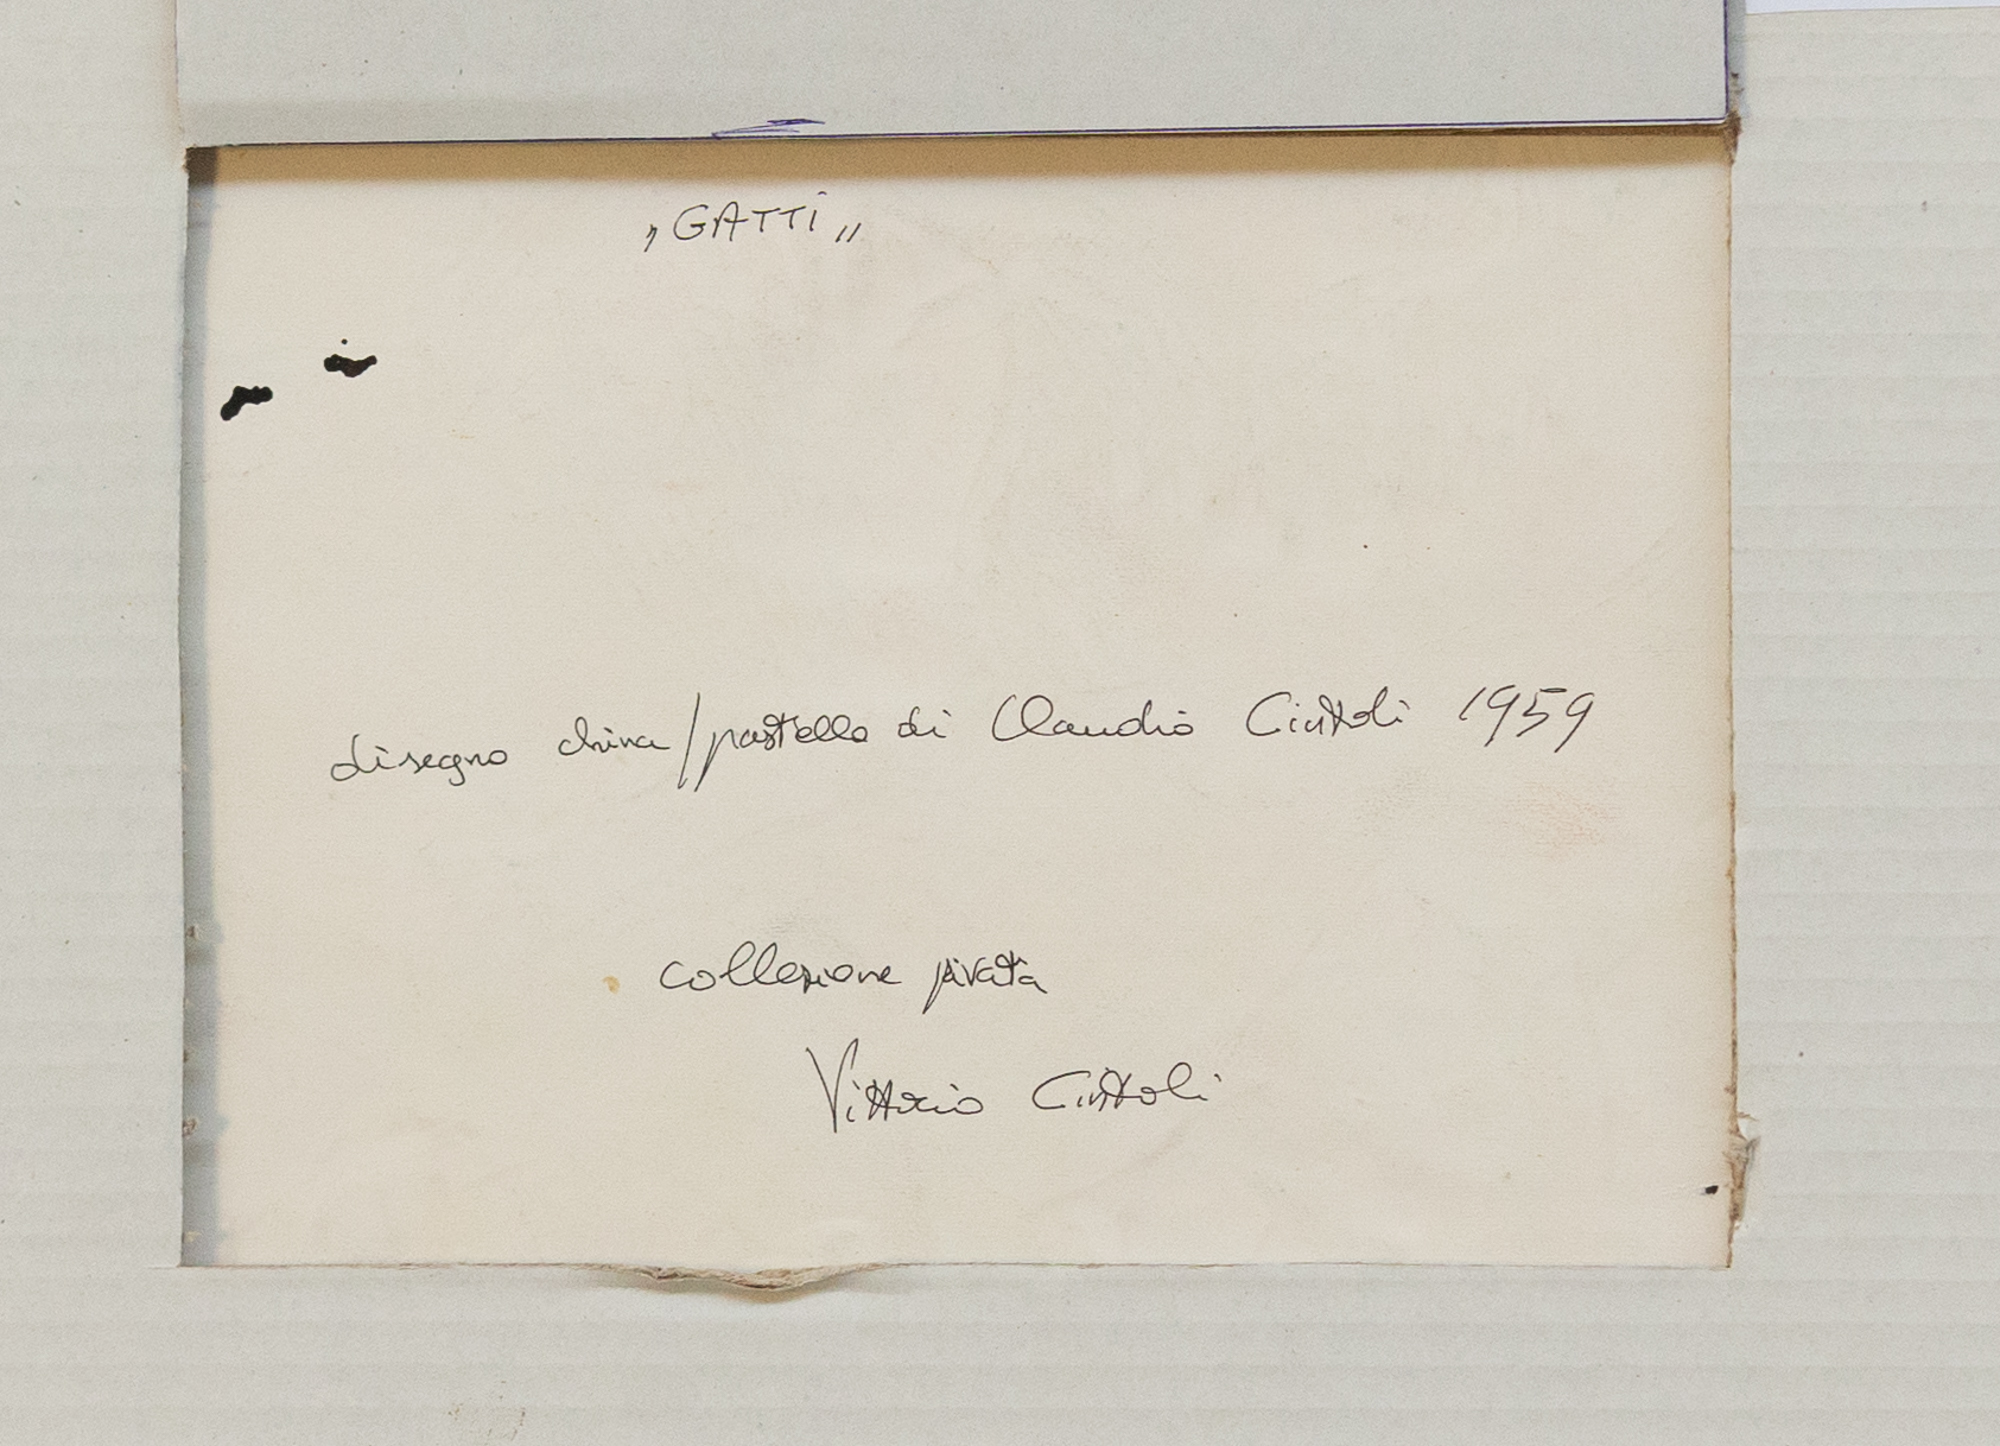 „GATTI„
disegno china/pastello di Claudio Ciuttoli 1959
collezione privata
Vittorio Ciuttoli